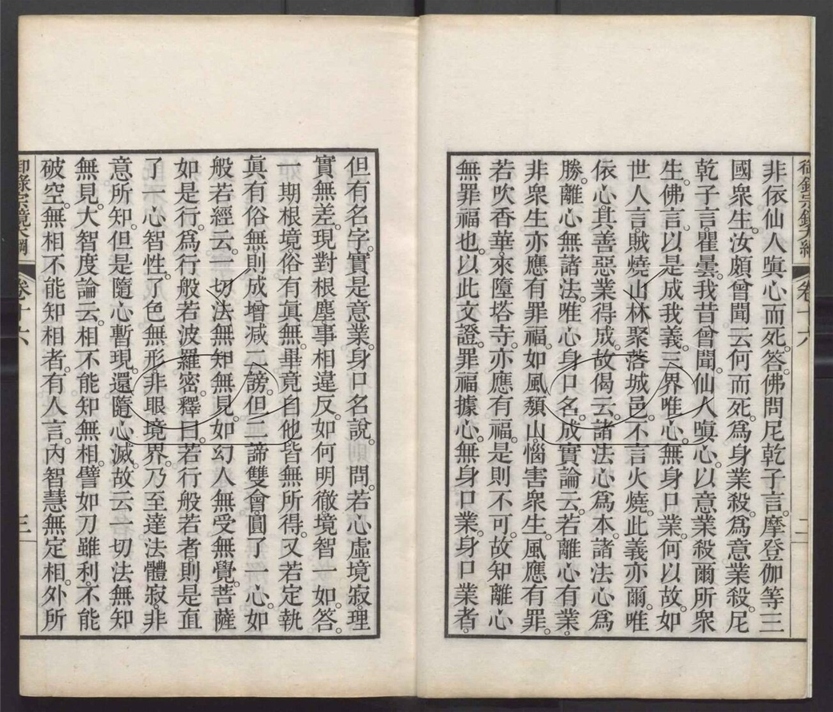 非依仙人嗔心而死。答。佛問尼乾子言。摩登伽等三
國衆生。汝頗曾聞云何而死。爲身業殺。爲意業殺。尼
乾子言。瞿曇。我昔曾聞。仙人嗔心。以意業殺爾所衆
生。佛言。以是成我義。三界唯心。無身口業。何以故。如
世人言。賊燒山林聚落城邑。不言火燒。此義亦爾。唯
依心。其善惡業得成。故偈云。諸法心爲本。諸法心爲
勝。離心無諸法。唯心身口名。成實論云。若離心有業。
非衆生亦應有罪福。如風頹山。惱害衆生。風應有罪。
若吹香華。來墮塔寺。亦應有福。是則不可。故知離心
無罪福也。以此文證。罪福據心。無身口業。身口業者。
二
御錄宗鏡大綱
卷十六
但有名字。實是意業。身口名說。 問。若心虛境寂。理
實無差。現對根塵。事相違反。如何明徹境智一如。答。
一期根境。俗有眞無。畢竟自他皆無所得。又若定執
眞有俗無。則成增減二謗。但二諦雙會。圓了一心。如
般若經云。一切法無知無見。如幻人無受無覺。菩薩
如是行。爲行般若波羅密。釋曰。若行般若者。則是直
了一心智性。了色無形。非眼境界。乃至達法體寂。非
意所知。但是隨心暫現。還隨心滅。故云一切法無知
無見。大智度論云。相不能知無相。譬如刀雖利。不能
破空。無相不能知相者。有人言。內智慧無定相。外所
御錄宗鏡大綱
卷十六
三